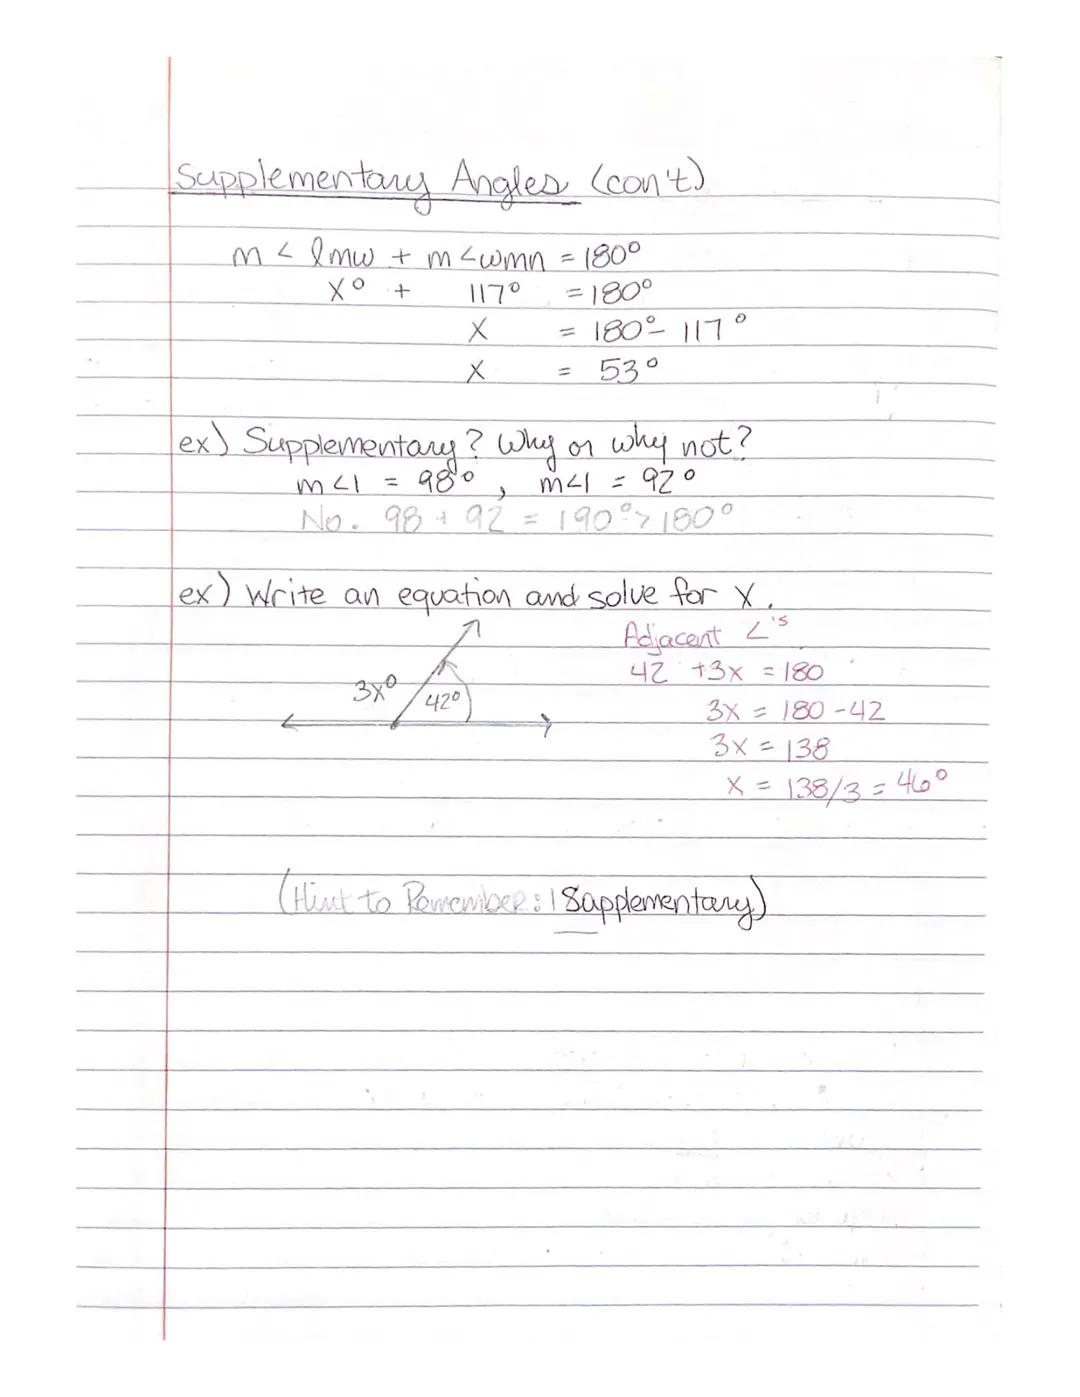 Supplementary Angles (con't)
m < lmw + m <wmn = 180°
x° + 117° = 180°
x = 180° - 117°
x = 53°
ex) Supplementary? Why or why not?
m<1 = 98°, m<1 = 92°
No. 98 + 92 = 190° > 180°
ex) Write an equation and solve for x.
Adjacent <'s
3x° 42°
42 + 3x = 180
3x = 180 - 42
3x = 138
x = 138/3 = 46°
(Hint to Remember: 18applementary)